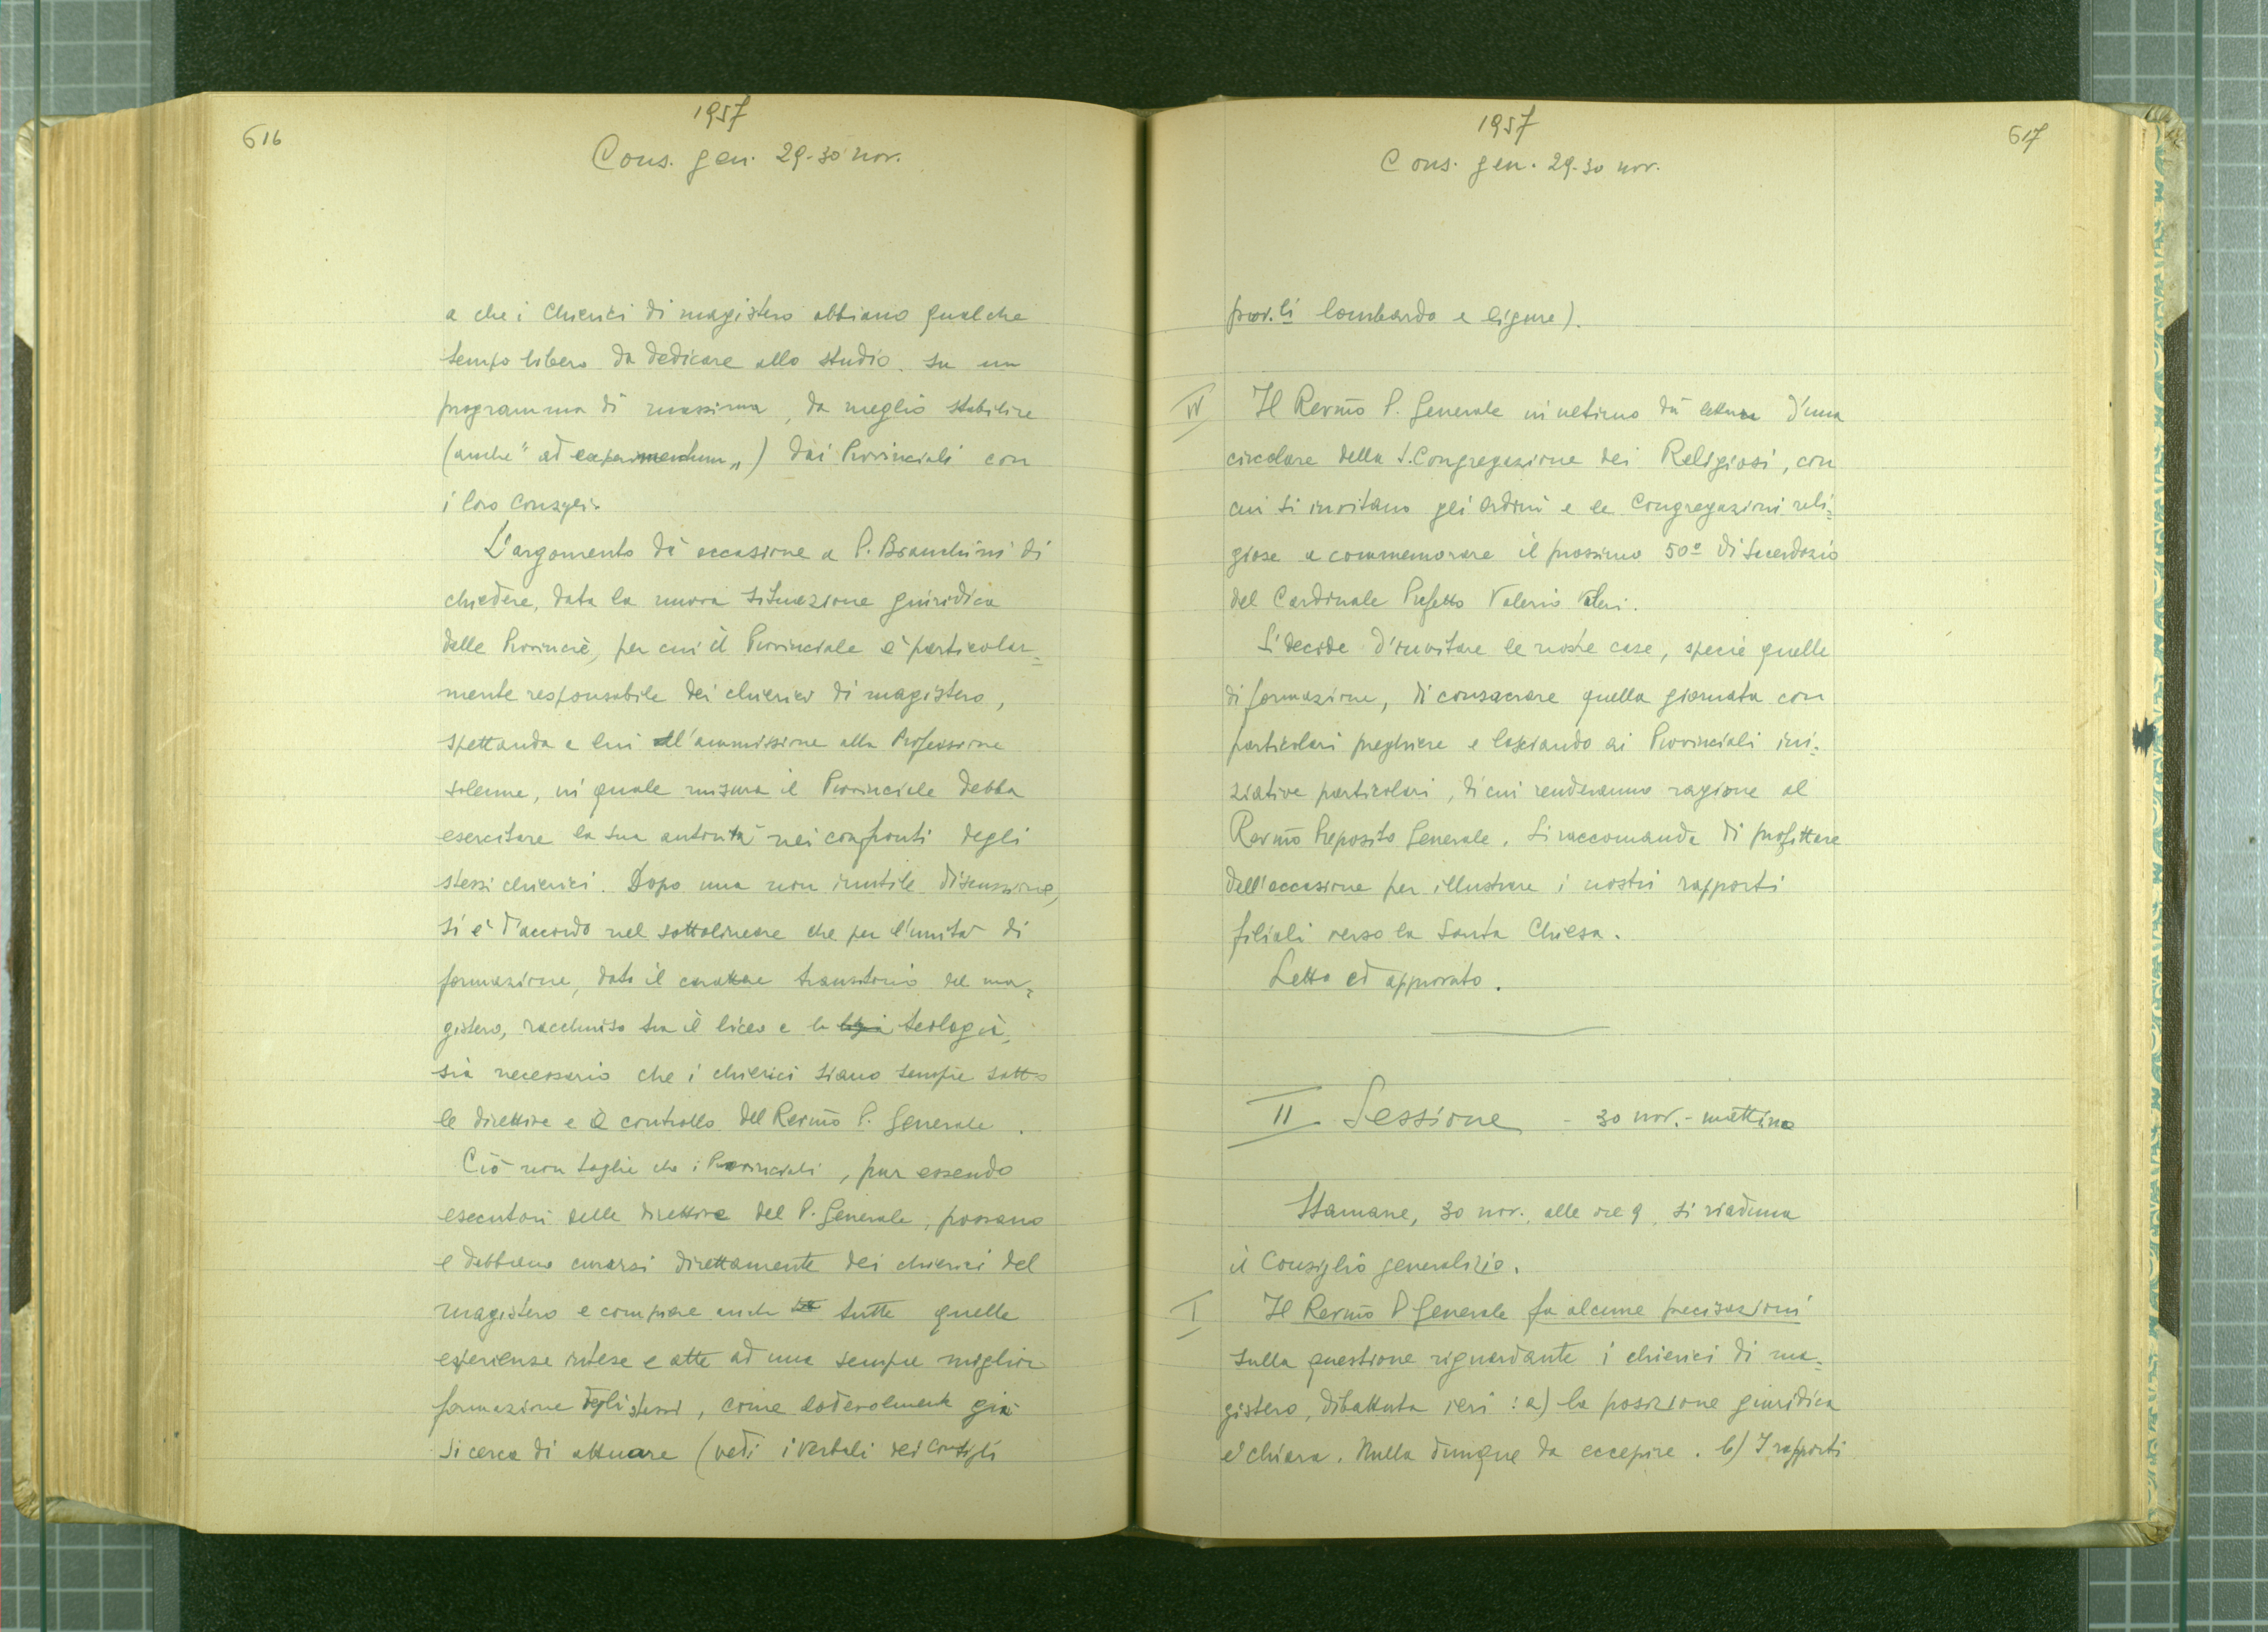 616
1957
Cons. gen. 29-30 nov.
a che i Chierici di magistero abbiano qualche
tempo libero da dedicare allo studio su un
programma di massima, da meglio stabilire
(anche "ad experimentum„) dai Provinciali con
i loro Consigli.
L'argomento dà occasione a P. Bianchini di
chiedere, data la nuova situazione giuridica
delle Provincie, per cui il Provinciale è particolar=
mente responsabile dei chierici di magistero,
spettando a lui all'ammissione alla Professione
solenne, in quale misura il Provinciale debba
esercitare la sua autorità nei confronti degli
stessi chierici. Dopo una non inutile discussione,
si è d'accordo nel sottolineare che per l'unità di
formazione, dato il carattere transitorio del ma=
gistero, racchiuso tra il liceo e la teologia,
sia necessario che i chierici siano sempre sotto
le direttive e il controllo del Rev.mo P. Generale.
Ciò non toglie che i Provinciali, pur essendo
esecutori delle direttive del P. Generale, possano
e debbano curarsi direttamente dei chierici del
magistero e compiere anche tutte quelle
esperienze intese e atte ad una sempre miglior
formazione degli stessi, come lodevolmente già
si cerca di attuare (vedi i verbali dei Consigli
617
1957
Cons. gen. 29-30 nov.
prov.li lombardo e ligure).
IV Il Rev.mo P. Generale in ultimo dà lettura d'una
circolare della S. Congregazione dei Religiosi, con
cui si invitano gli Ordini e le Congregazioni reli=
giose a commemorare il prossimo 50º di Sacerdozio
del Cardinale Prefetto Valerio Valeri.
Si decide d'invitare le nostre case, specie quelle
di formazione, di consacrare quella giornata con
particolari preghiere e lasciando ai Provinciali ini=
ziative particolari, di cui renderanno ragione al
Rev.mo Preposito Generale. Si raccomanda di profittare
dell'occasione per illustrare i nostri rapporti
filiali verso la Santa Chiesa.
Letto ed approvato.
II Sessione - 30 nov. - mattina
Stamane, 30 nov., alle ore 9, si riaduna
il Consiglio generalizio.
I Il Rev.mo P Generale fa alcune precisazioni
sulla questione riguardante i chierici di ma=
gistero, dibattuta ieri: a) la posizione giuridica
è chiara. Nulla dunque da eccepire. b) I rapporti